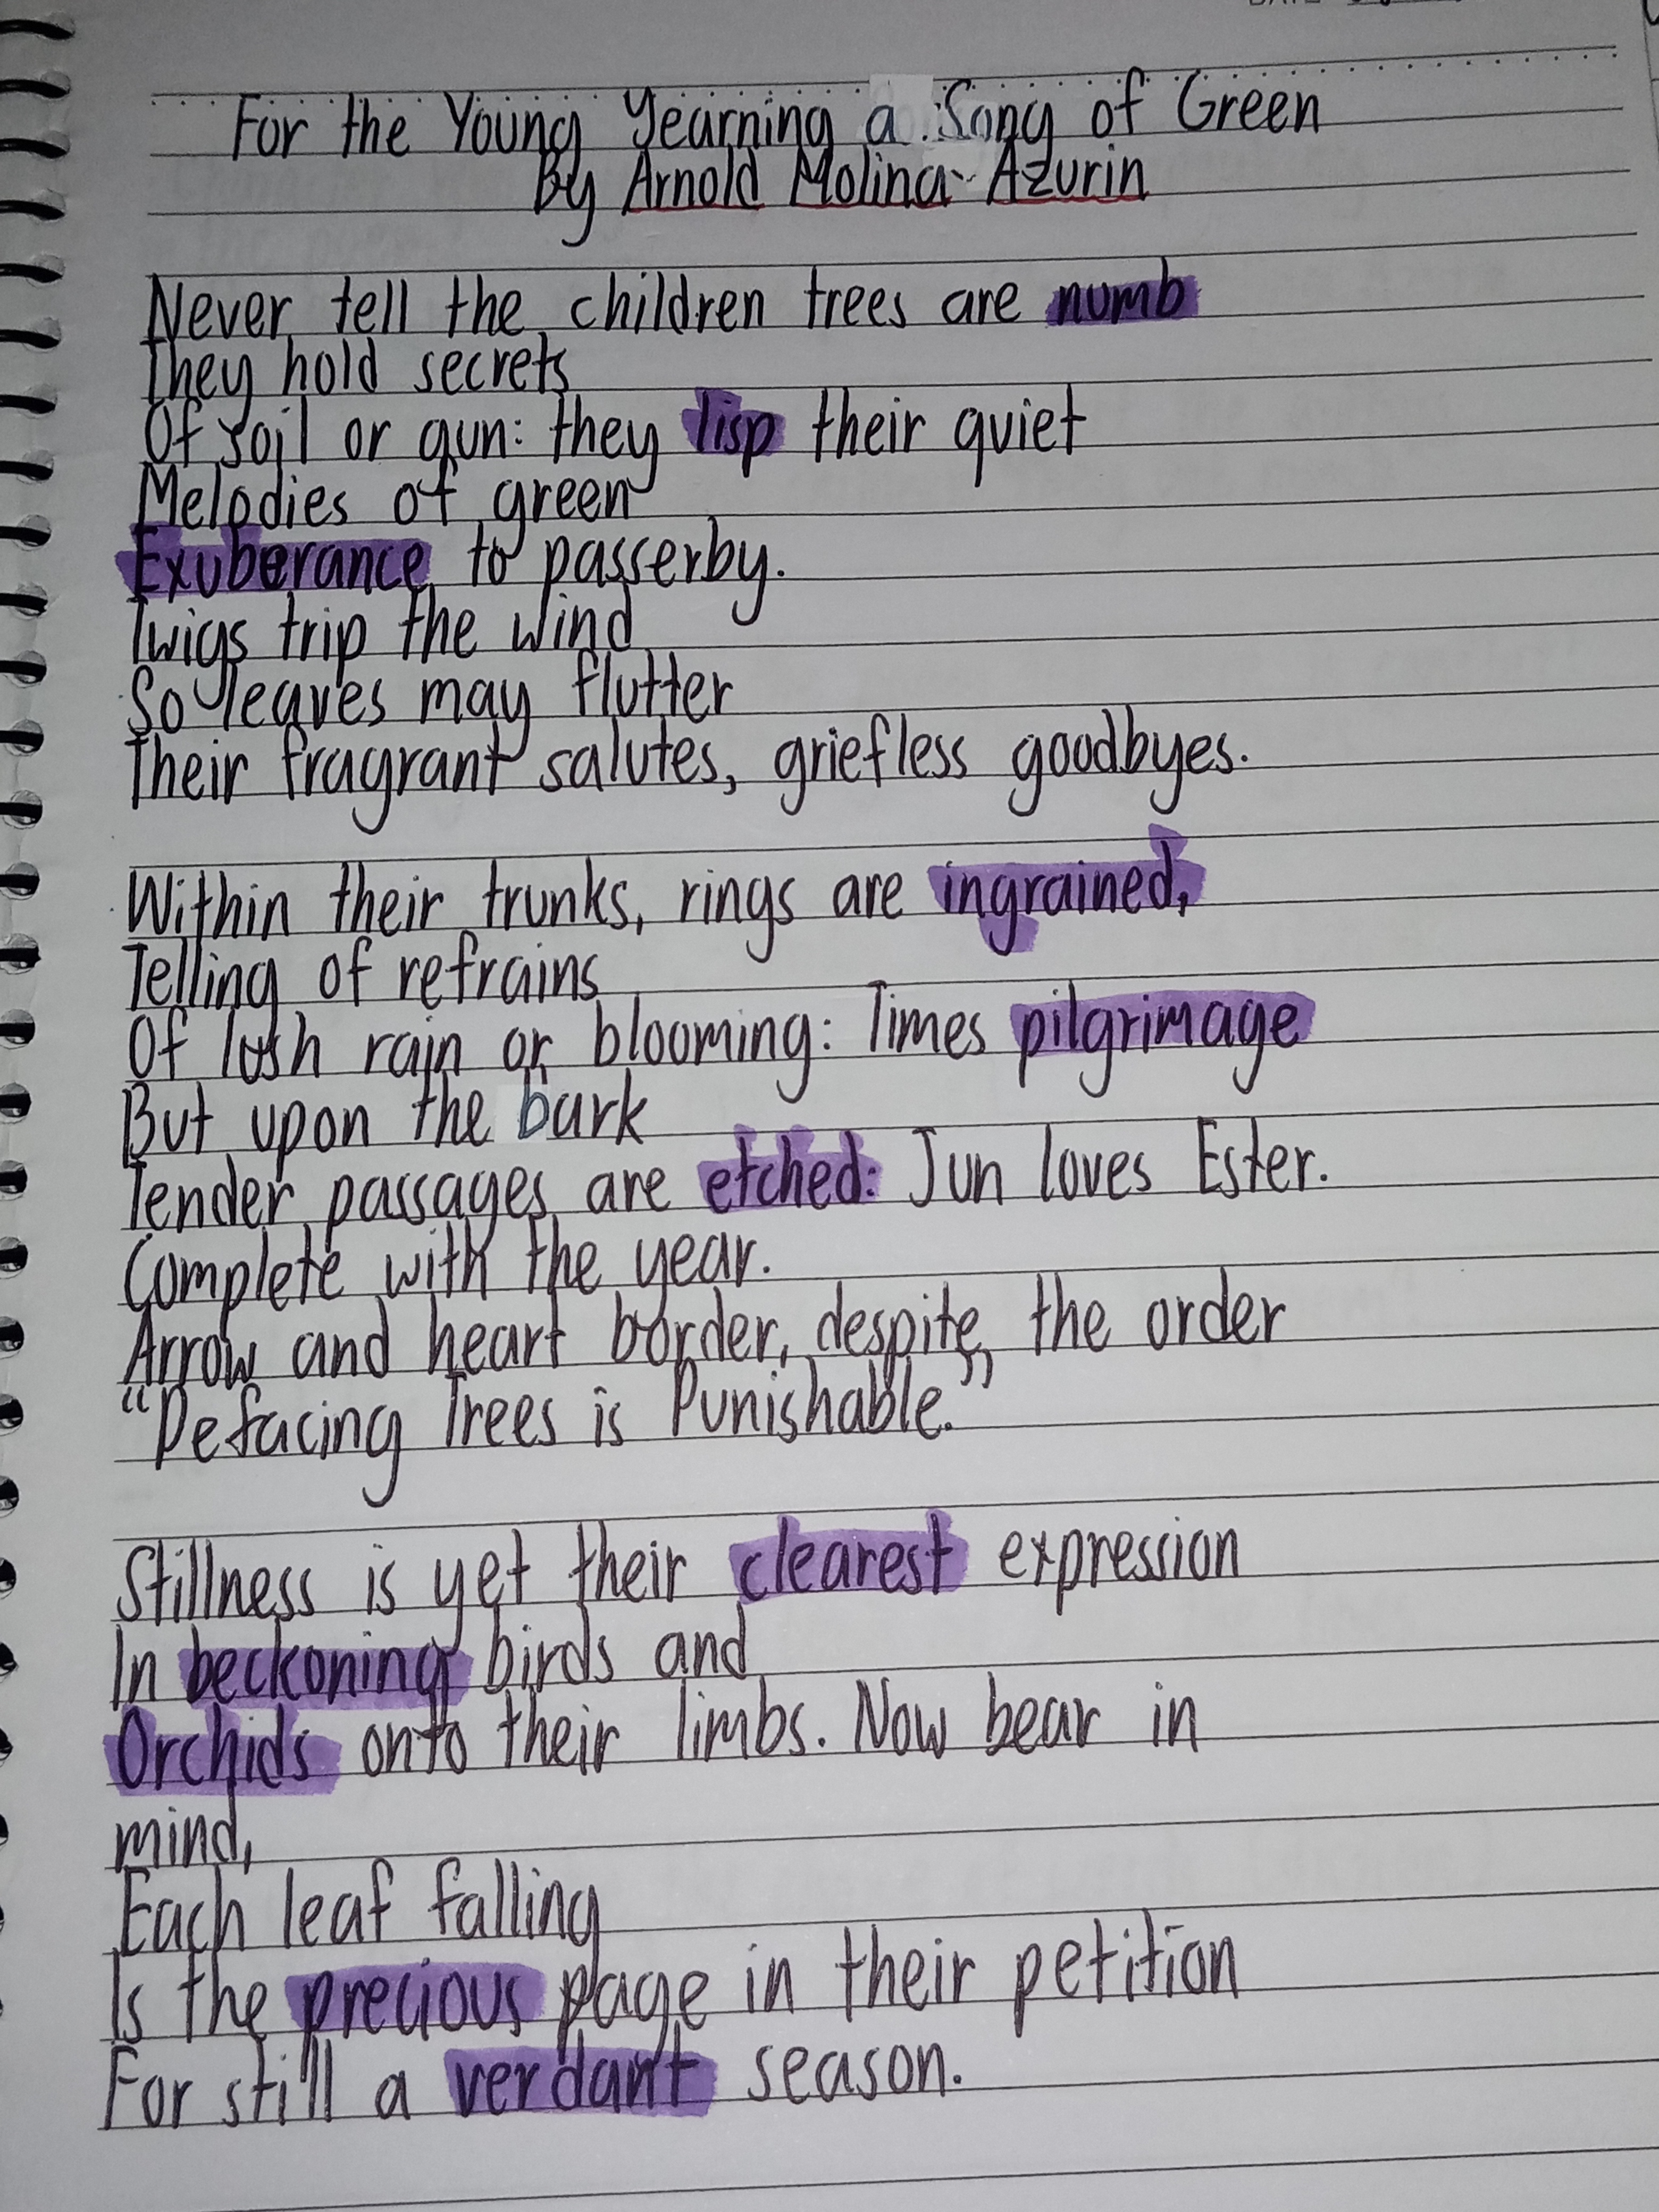 For the Young Yearning a Song of Green
By Arnold Molina Azurin
Never tell the children trees are numb
They hold secrets
Of soil or gun: they lisp their quiet
Melodies of green
Exuberance to passerby.
Twigs trip the wind
So leaves may flutter
Their fragrant salutes, griefless goodbyes.
Within their trunks, rings are ingrained,
Telling of refrains
Of lush rain or blooming: Times pilgrimage
But upon the bark
Tender passages are etched: Jun loves Ester.
Complete with the year.
Arrow and heart border, despite the order
“Defacing Trees is Punishable.”
Stillness is yet their clearest expression
In beckoning birds and
Orchids onto their limbs. Now bear in
mind,
Each leaf falling
Is the precious page in their petition
For still a verdant season.